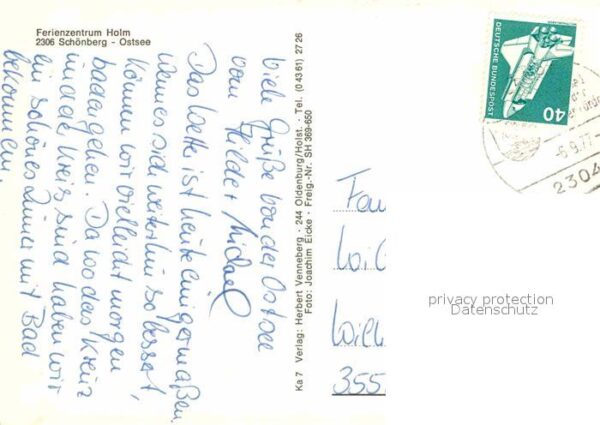 Ferienzentrum Holm
2306 Schönberg - Ostsee
Viele Grüße von der Ostsee
von Hilde + Michael
Das Wetter ist heute einigermaßen.
Wenn es sich weiterhin so bessert,
können wir vielleicht morgen
baden gehen. Da wo das Kreuz
und der Kreis sind haben wir
ein schönes Zimmer mit Bad
bekommen.
Ka 7 Verlag: Herbert Venneberg · 244 Oldenburg/Holst. · Tel. (0 43 61) 27 26
Foto: Joachim Eicke · Freig.-Nr. SH 369-650
DEUTSCHE BUNDESPOST
40
-6.9.77-
2304
Fam
Wilh
355
privacy protection
Datenschutz